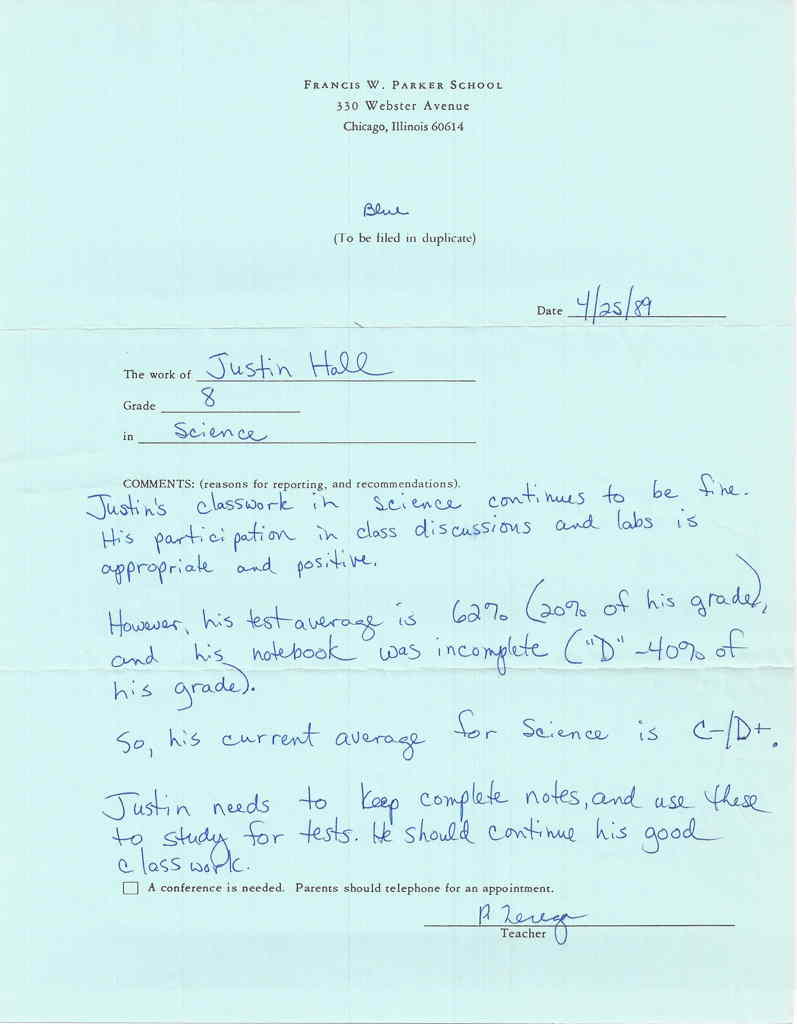 FRANCIS W. PARKER SCHOOL
330 Webster Avenue
Chicago, Illinois 60614
Blue
(To be filed in duplicate)
Date 4/25/89
The work of Justin Hall
Grade 8
in Science
COMMENTS: (reasons for reporting, and recommendations).
Justin's classwork in science continues to be fine.
His participation in class discussions and labs is
appropriate and positive.
However, his test average is 62% (20% of his grade),
and his notebook was incomplete ("D" - 40% of
his grade).
So, his current average for Science is C-/D+.
Justin needs to keep complete notes, and use these
to study for tests. He should continue his good
classwork.
A conference is needed. Parents should telephone for an appointment.
Teacher